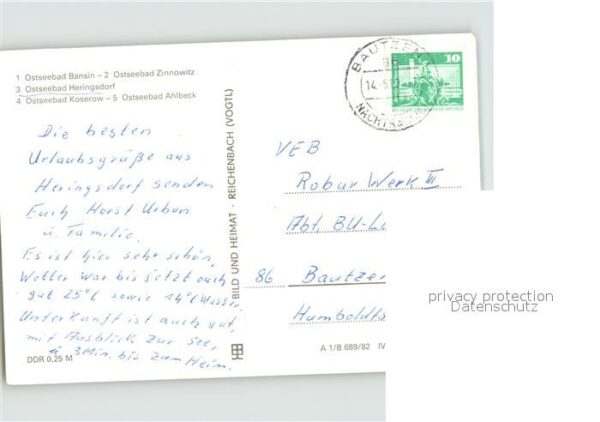 1 Ostseebad Bansin – 2 Ostseebad Zinnowitz
3 Ostseebad Heringsdorf
4 Ostseebad Koserow – 5 Ostseebad Ahlbeck
Die besten
Urlaubsgrüße aus
Heringsdorf senden
Euch Horst Urban
u. Familie.
Es ist hier sehr schön,
Wetter war bis jetzt auch
gut 25°C sowie 14°C Wasser.
Unterkunft ist auch gut,
mit Ausblick zur See,
u 3 Min. bis zum Heim.
DDR 0,25 M
BILD UND HEIMAT · REICHENBACH (VOGTL)
BAUTZEN
86
14.
10
VEB
Robur Werk III
Abt. BU-L
86 Bautze
Humboldts
A 1/B 689/82 IV
privacy protection
Datenschutz